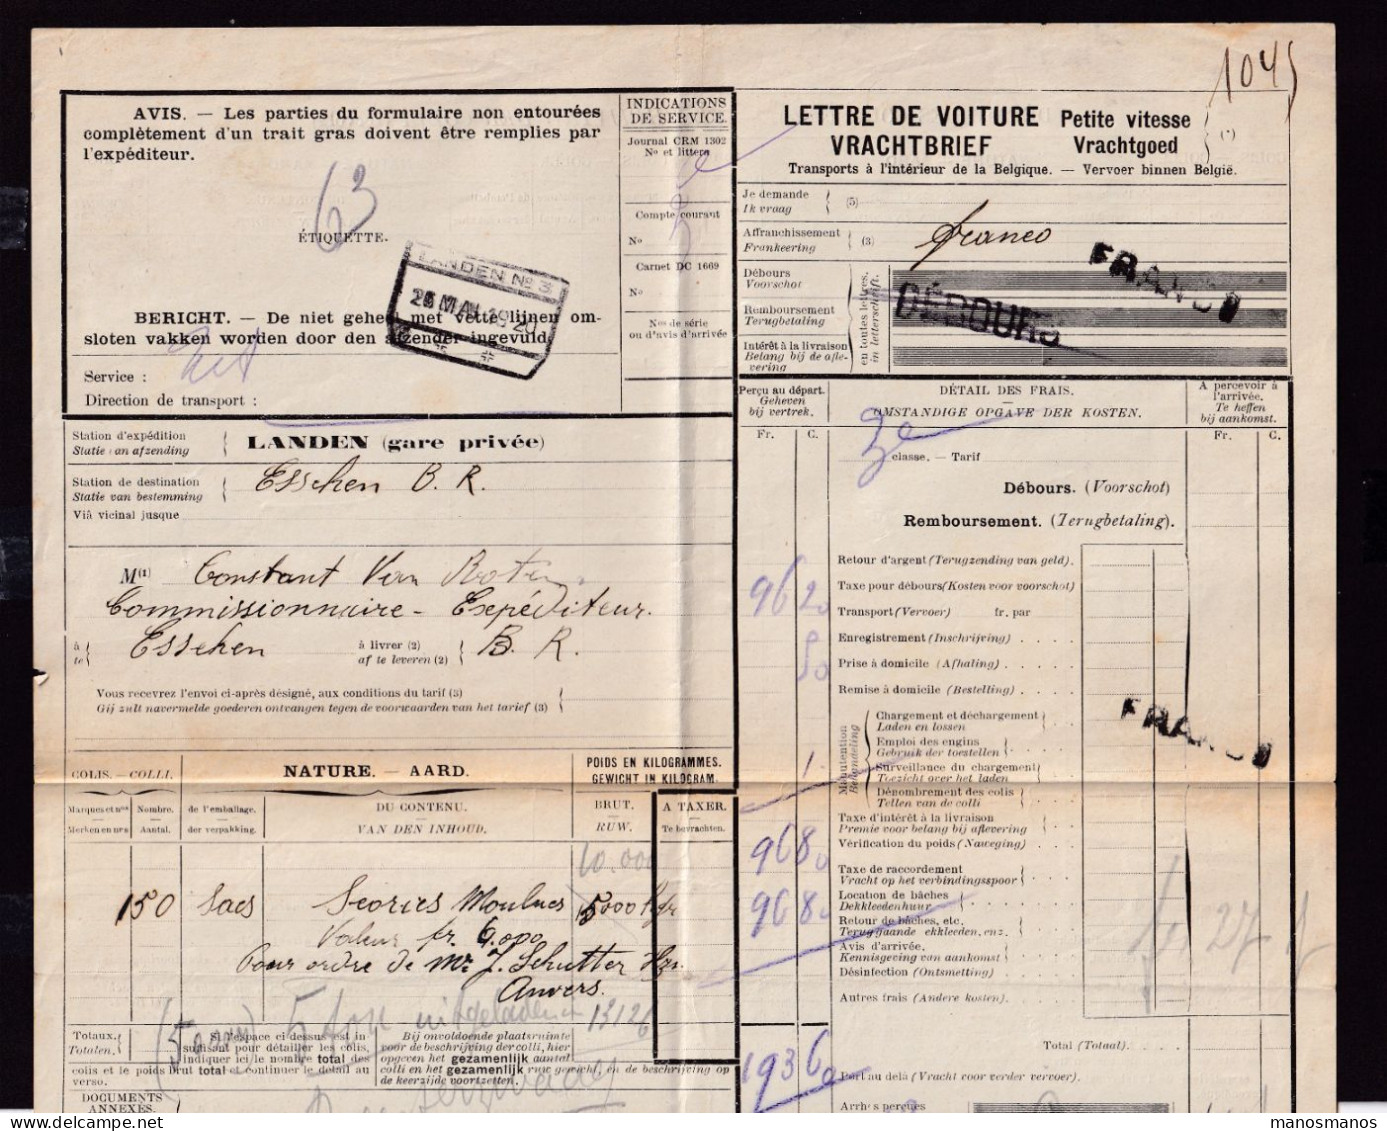 1045
AVIS. — Les parties du formulaire non entourées
complètement d'un trait gras doivent être remplies par
l'expéditeur.
63
ÉTIQUETTE.
LANDEN N° 3
MAI 1920
BERICHT. — De niet geheel met vette lijnen om-
sloten vakken worden door den afzender ingevuld.
Service :
Direction de transport :
INDICATIONS
DE SERVICE.
Journal CRM 1302
Nº et littera
Compte courant
Nº
Carnet DC 1669
Nº
Nos de série
ou d'avis d'arrivée
LETTRE DE VOITURE
VRACHTBRIEF
Petite vitesse
Vrachtgoed
(*)
Transports à l'intérieur de la Belgique. — Vervoer binnen België.
Je demande
Ik vraag
(5)
Affranchissement
Frankeering
(3)
franco
FRANCO
Débours
Voorschot
DÉBOURS
Remboursement
Terugbetaling
Intérêt à la livraison
Belang bij de afle-
vering
en toutes lettres.
in letterschrift.
Station d'expédition
Statie van afzending
LANDEN (gare privée)
Station de destination
Statie van bestemming
Esschen B. R.
Viâ vicinal jusque
M(1) Constant Van
Commissionnaire - Expéditeur.
à
te
Esschen
à livrer (2)
af te leveren (2)
B. R.
Vous recevrez l'envoi ci-après désigné, aux conditions du tarif (3)
Gij zult navermelde goederen ontvangen tegen de voorwaarden van het tarief (3)
COLIS. — COLLI.
NATURE. — AARD.
POIDS EN KILOGRAMMES.
GEWICHT IN KILOGRAM.
Marques et nos
Merken en nrs
Nombre.
Aantal.
de l'emballage.
der verpakking.
DU CONTENU.
VAN DEN INHOUD.
BRUT.
RUW.
A TAXER.
Te bevrachten.
10.000
150 Sacs Scories Moulues
Valeur fr. 6.000
Pour ordre de Mr J. Schutter
Anvers.
13126
5 ton uitgeladen
Totaux.
Totalen.
Si l'espace ci-dessus est in-
suffisant pour détailler les colis,
indiquer ici le nombre total des
colis et le poids brut total et continuer le détail au
verso.
Bij onvoldoende plaatsruimte
voor de beschrijving der colli, hier
opgeven het gezamenlijk aantal
colli en het gezamenlijk ruw gewicht, en de beschrijving op
de keerzijde voortzetten.
DOCUMENTS
ANNEXÉS.
Perçu au départ.
Geheven
bij vertrek.
DÉTAIL DES FRAIS.
OMSTANDIGE OPGAVE DER KOSTEN.
A percevoir à
l'arrivée.
Te heffen
bij aankomst.
Fr. C.
Fr. C.
3e
classe. — Tarif
Débours. (Voorschot)
Remboursement. (Terugbetaling).
Retour d'argent (Terugzending van geld).
Taxe pour débours (Kosten voor voorschot)
96 20
Transport (Vervoer) fr. par
Enregistrement (Inschrijving)
Prise à domicile (Afhaling)
Remise à domicile (Bestelling)
Manutention
Behandeling
Chargement et déchargement
Laden en lossen
FRANCO
Emploi des engins
Gebruik der toestellen
Surveillance du chargement
Toezicht over het laden
Dénombrement des colis
Tellen van de colli
Taxe d'intérêt à la livraison
Premie voor belang bij aflevering
Vérification du poids (Naweging)
968
Taxe de raccordement
Vracht op het verbindingsspoor
Location de bâches
Dekkleedenhuur
968
Retour de bâches, etc.
Teruggaande dekkleeden, enz.
Avis d'arrivée.
Kennisgeving van aankomst
Désinfection (Ontsmetting)
Autres frais (Andere kosten).
Total (Totaal).
1936
Port au delà (Vracht voor verder vervoer).
manosmanos